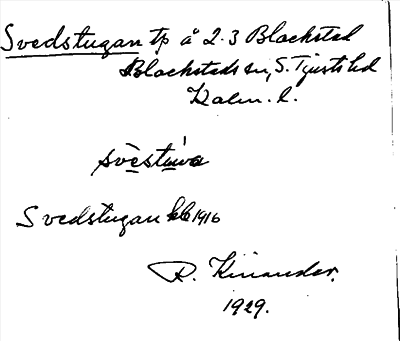 Svedstugan tp å 2.3 Blackstad
Blackstads sn, S. Tjusts hd
Kalm. l.
svèstu̇va
Svedstugan kb 1916
R. Kinander.
1929.